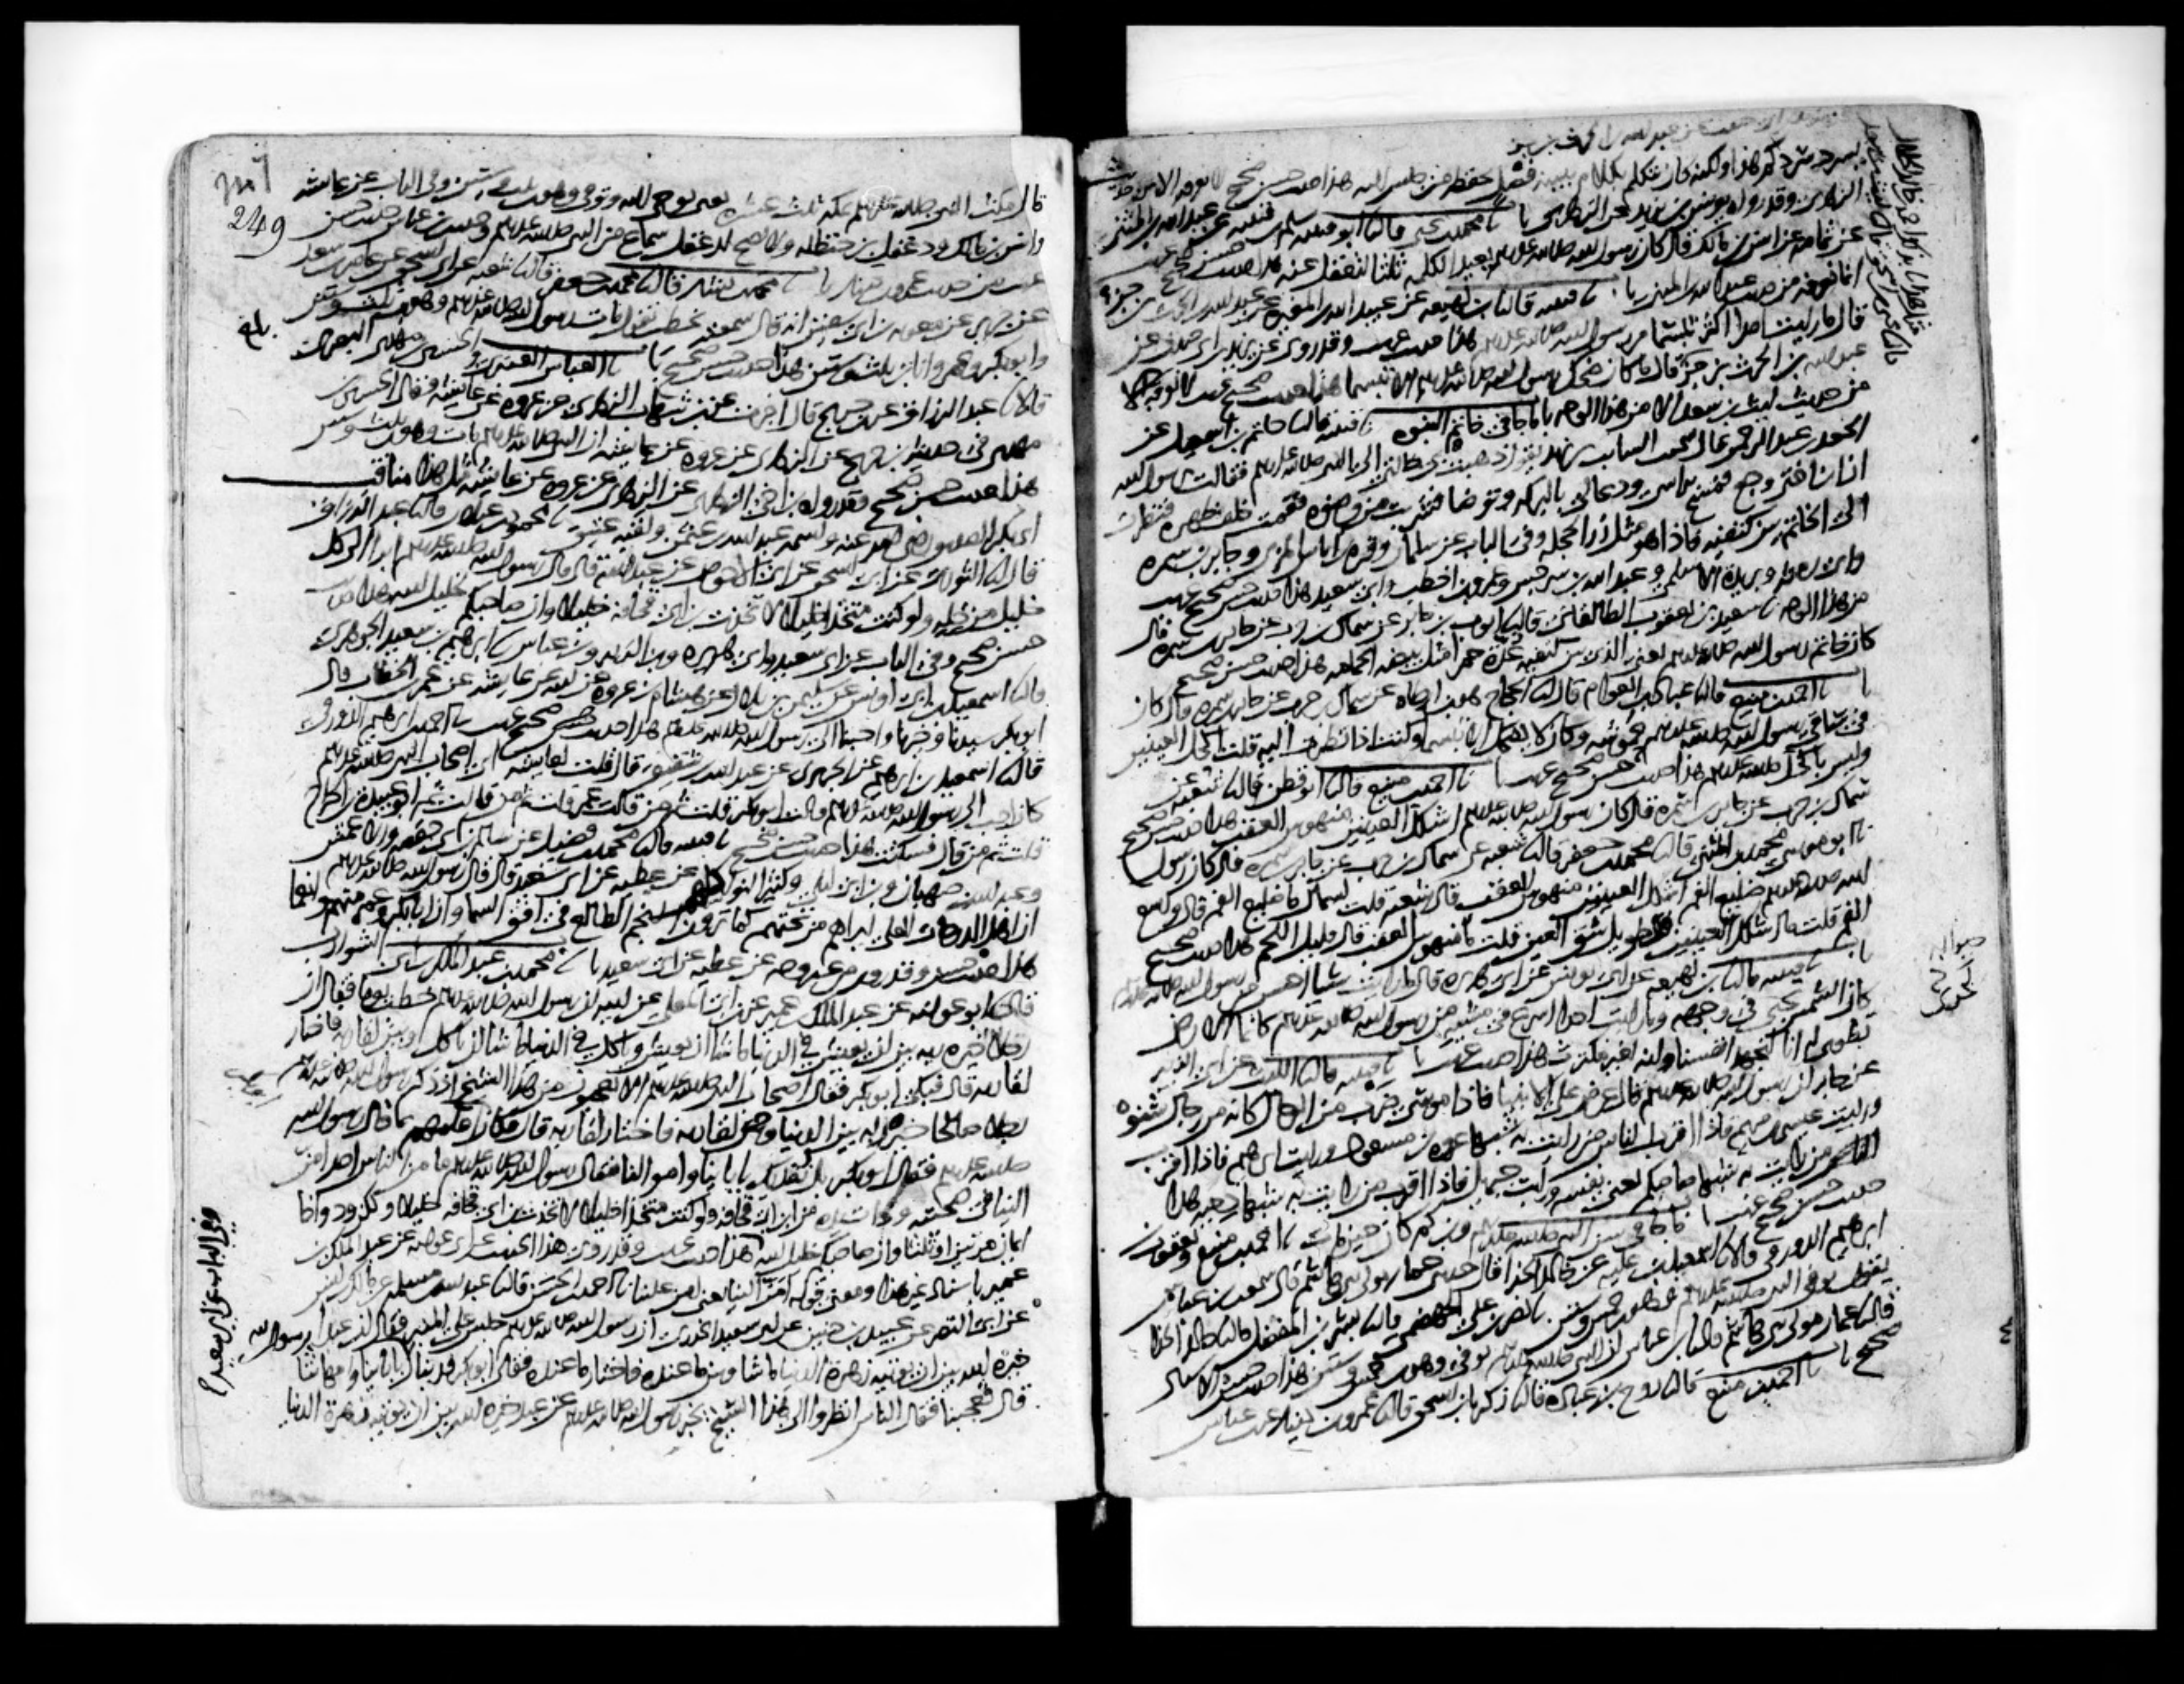 يسرد سردكم هذا ولكنه كان يتكلم بكلام يبينه فصل يحفظه من جلس اليه هذا حديث حسن صحيح لا نعرفه الا من حديث
الزهري وقد رواه يونس بن يزيد عن الزهري با نا محمد بن يحيى قال نا ابو قتيبه سلم بن قتيبه عن عبد الله بن المثنى
عن ثمامه عن انس بن مالك قال كان رسول الله صلى الله عليه وسلم يعيد الكلمه ثلثا لتعقل عنه هذا حديث حسن صحيح غريب
انما نعرفه من حديث عبد الله بن المثنى با نا قتيبه قال نا ابن لهيعه عن عبيد الله بن المغيره عن عبد الله بن الحرث بن جزء
قال ما رايت احدا اكثر تبسما من رسول الله صلى الله عليه وسلم هذا حديث غريب وقد روى عن يزيد بن ابي حبيب عن
عبد الله بن الحرث بن جزء قال ما كان ضحك رسول الله صلى الله عليه وسلم الا تبسما هذا حديث صحيح غريب لا نعرفه الا
من حديث ليث بن سعد الا من هذا الوجه باب ما جا في خاتم النبوه نا قتيبه قال نا حاتم بن اسمعيل عن
الجعد بن عبد الرحمن قال سمعت السايب بن يزيد يقول ذهبت بي خالتي الى النبي صلى الله عليه وسلم فقالت يا رسول الله
ان ابن اختي وجع فمسح براسي ودعا لي بالبركه وتوضا فشربت من وضوه فقمت خلف ظهره فنظرت
الى الخاتم بين كتفيه فاذا هو مثل زر الحجله وفي الباب عن سلمان وقره بن اياس المزني وجابر بن سمره
وابي رمثه وبريده الاسلمي وعبد الله بن سرجس وعمرو بن اخطب وابي سعيد هذا حديث حسن صحيح غريب
من هذا الوجه نا سعيد بن يعقوب الطالقاني قال نا ايوب بن جابر عن سماك بن حرب عن جابر بن سمره قال
كان خاتم رسول الله صلى الله عليه وسلم يعني الذي بين كتفيه غده حمرا مثل بيضه الحمامه هذا حديث حسن صحيح
با نا احمد بن منيع قال نا عباد بن العوام قال نا الحجاج هو ابن ارطاه عن سماك بن حرب عن جابر بن سمره قال كان
في ساقي رسول الله صلى الله عليه وسلم حموشه وكان لا يضحك الا تبسما وكنت اذا نظرت اليه قلت اكحل العينين
وليس باكحل صلى الله عليه وسلم هذا حديث حسن صحيح غريب با نا احمد بن منيع قال نا ابو قطن قال نا شعبه عن
سماك بن حرب عن جابر بن سمره قال كان رسول الله صلى الله عليه وسلم اشكل العينين منهوس العقب هذا حديث حسن صحيح
نا ابو موسى محمد بن المثنى قال نا محمد بن جعفر قال نا شعبه عن سماك بن حرب عن جابر بن سمره قال كان رسول
الله صلى الله عليه وسلم ضليع الفم اشكل العينين منهوس العقب قال شعبه قلت لسماك ما ضليع الفم قال واسع
الفم قلت ما اشكل العينين قال طويل شق العين قلت ما منهوس العقب قال قليل اللحم هذا حديث حسن صحيح
با نا قتيبه قال نا ابن لهيعه عن ابي يونس عن ابي هريره قال ما رايت شيا احسن من رسول الله صلى الله عليه وسلم
كان الشمس تجري في وجهه وما رايت احدا اسرع في مشيه من رسول الله صلى الله عليه وسلم كانما الارض
تطوى له انا لنجهد انفسنا وانه لغير مكترث هذا حديث غريب با نا قتيبه قال نا الليث عن ابي الزبير
عن جابر ان رسول الله صلى الله عليه وسلم قال عرض علي الانبيا فاذا موسى ضرب من الرجال كانه من رجال شنوه
ورايت عيسى بن مريم فاذا اقرب الناس من رايت به شبها عروه بن مسعود ورايت ابرهيم فاذا اقرب
الناس من رايت به شبها صاحبكم يعني نفسه ورايت جبريل فاذا اقرب من رايت به شبها دحيه هذا
حديث حسن صحيح غريب باب ما جا في سن النبي صلى الله عليه وسلم وابن كم كان حين مات نا احمد بن منيع ويعقوب بن
ابرهيم الدورقي قالا نا اسمعيل بن عليه عن خالد الحذا قال حدثني عمار مولى بني هاشم قال سمعت ابن عباس
يقول توفي النبي صلى الله عليه وسلم وهو ابن خمس وستين نا نصر بن علي الجهضمي قال نا بشر بن المفضل قال نا خالد الحذا
قال نا عمار مولى بني هاشم قال نا ابن عباس ان النبي صلى الله عليه وسلم توفي وهو ابن خمس وستين هذا حديث حسن الاسناد
صحيح با نا احمد بن منيع قال نا روح بن عباده قال نا زكريا بن اسحق قال نا عمرو بن دينار عن ابن عباس
249
قال مكث النبي صلى الله عليه وسلم بمكه ثلث عشره يعني يوحى اليه وتوفي وهو ابن ثلث وستين وفي الباب عن عايشه
وانس بن مالك ودغفل بن حنظله ولا يصح لدغفل سماع من النبي صلى الله عليه وسلم وحديث ابن عباس حديث حسن
غريب من حديث عمرو بن دينار با نا محمد بن بشار قال نا محمد بن جعفر قال نا شعبه عن ابي اسحق عن عامر بن سعد
عن جرير عن معويه بن ابي سفين انه قال سمعته يخطب يقول مات رسول الله صلى الله عليه وسلم وهو ابن ثلث وستين
وابو بكر وعمر وانا ابن ثلث وستين هذا حديث حسن صحيح با نا العباس العنبري والحسين بن مهدي البصري
قالا نا عبد الرزاق عن ابن جريج قال اخبرت عن ابن شهاب الزهري عن عروه عن عايشه وقال الحسين بن
مهدي في حديثه ابن جريج عن الزهري عن عروه عن عايشه ان النبي صلى الله عليه وسلم مات وهو ابن ثلث وستين
هذا حديث حسن صحيح وقد رواه ابن اخي الزهري عن الزهري عن عروه عن عايشه مثل هذا مناقب
ابي بكر الصديق رضي الله عنه واسمه عبد الله بن عثمن ولقبه عتيق نا محمود بن غيلان قال نا عبد الرزاق
قال نا الثوري عن ابي اسحق عن ابي الاحوص عن عبد الله قال قال رسول الله صلى الله عليه وسلم ابرا الى كل
خليل من خله ولو كنت متخذا خليلا لاتخذت ابن ابي قحافه خليلا وان صاحبكم خليل الله هذا حديث
حسن صحيح وفي الباب عن ابي سعيد وابي هريره وابن الزبير وابن عباس نا ابرهيم بن سعيد الجوهري
قال نا اسمعيل بن ابي اويس عن سليمن بن بلال عن هشام بن عروه عن ابيه عن عايشه عن عمر بن الخطاب قال
ابو بكر سيدنا وخيرنا واحبنا الى رسول الله صلى الله عليه وسلم هذا حديث حسن صحيح غريب نا احمد بن ابرهيم الدورقي
قال نا اسمعيل بن ابرهيم عن الجريري عن عبد الله بن شقيق قال قلت لعايشه اي اصحاب النبي صلى الله عليه وسلم
كان احب الى رسول الله صلى الله عليه وسلم قالت ابو بكر قلت ثم من قالت عمر قلت ثم من قالت ثم ابو عبيده بن الجراح
قلت ثم من قال فسكتت هذا حديث حسن صحيح نا قتيبه قال نا محمد بن فضيل عن سالم بن ابي حفصه والاعمش
وعبد الله بن صهبان وابن ابي ليلى وكثير النوا كلهم عن عطيه عن ابي سعيد قال قال رسول الله صلى الله عليه وسلم
ان اهل الدرجات العلى ليراهم من تحتهم كما ترون النجم الطالع في افق السما وان ابا بكر وعمر منهم وانعما
هذا حديث حسن وقد روي من غير وجه عن عطيه عن ابي سعيد با نا محمد بن عبد الملك بن ابي الشوارب
قال نا ابو عوانه عن عبد الملك بن عمير عن ابن ابي المعلى عن ابيه ان رسول الله صلى الله عليه وسلم خطب يوما فقال ان
رجلا خيره ربه بين ان يعيش في الدنيا ما شا ان يعيش وياكل في الدنيا ما شا ان ياكل وبين لقا ربه فاختار
لقا ربه قال فبكى ابو بكر فقال اصحاب النبي صلى الله عليه وسلم الا تعجبون من هذا الشيخ اذ ذكر رسول الله صلى الله عليه وسلم
رجلا صالحا خيره ربه بين الدنيا وبين لقا ربه فاختار لقا ربه قال فكان ابو بكر اعلمهم بما قال رسول الله
صلى الله عليه وسلم فقال ابو بكر بل نفديك بابابنا واموالنا فقال رسول الله صلى الله عليه وسلم ما من الناس احد امن
الينا في صحبته وذات يده من ابن ابي قحافه ولو كنت متخذا خليلا لاتخذت ابن ابي قحافه خليلا ولكن ود واخا
ايمان مرتين او ثلثا وان صاحبكم خليل الله هذا حديث غريب وقد روي هذا الحديث عن ابي عوانه عن عبد الملك بن
عمير باسناد غير هذا ومعنى قوله امن الينا يعني امن علينا نا احمد بن الحسن قال نا عبد الله بن مسلمه عن مالك بن انس
عن ابي النضر عن عبيد بن حنين عن ابي سعيد الخدري ان رسول الله صلى الله عليه وسلم جلس على المنبر فقال ان عبدا
خيره الله بين ان يوتيه زهرة الدنيا ما شا وبين ما عنده فاختار ما عنده فقال ابو بكر فديناك بابابنا وامهاتنا
قال فعجبنا فقال الناس انظروا الى هذا الشيخ يخبر رسول الله صلى الله عليه وسلم عن عبد خيره الله بين ان يوتيه زهرة الدنيا
وفي الباب عن ابي سعيد